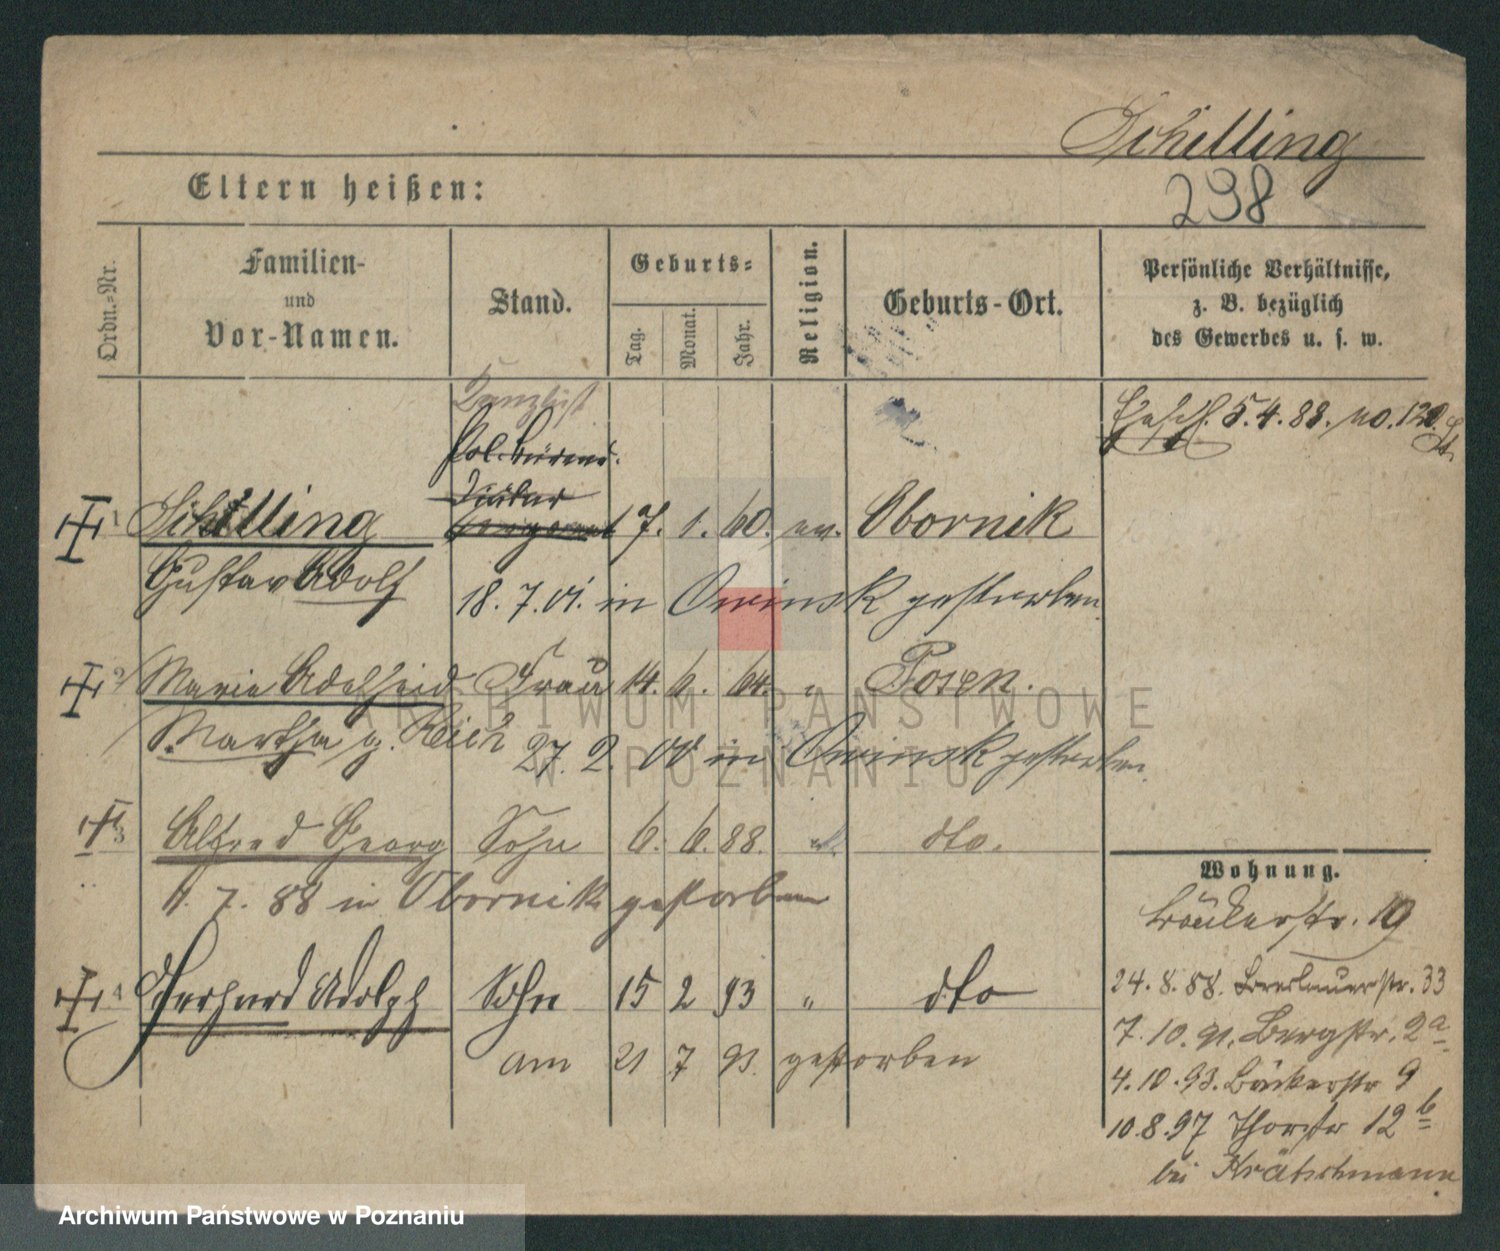 Schilling
Eltern heißen:
298
Ordn.-Nr.
Familien-
und
Vor-Namen.
Stand.
Geburts-
Tag.
Monat.
Jahr.
Religion.
Geburts-Ort.
Persönliche Verhältnisse,
z. B. bezüglich
des Gewerbes u. s. w.
Kanzlist
Pol. Büreau
Diätar
Sergeant
5.4.88. no. 120
1 Schilling 17. 1. 60. ev. Obornik
Gustav Adolf
18. 7. 01. in Owinsk gestorben
2 Marie Adelheid Frau 14. 6. 64. " Posen.
Martha g. Reich
27. 2. 00 in Owinsk gestorben
3 Alfred Georg Sohn 6. 6. 88. " dto.
7. 88 in Obornik gestorben
4 Gerhard Adolph Sohn 15 2 93 " dto
am 21 7 93. gestorben
Wohnung.
Bäckerstr. 19
24. 8. 88. Breslauerstr. 33
7. 10. 91. Bergstr. 2a
4. 10. 93. Bäckerstr 9
10. 8. 97 Thorstr 12b
bei Krätschmann
ARCHIWUM PAŃSTWOWE
W POZNANIU
Archiwum Państwowe w Poznaniu